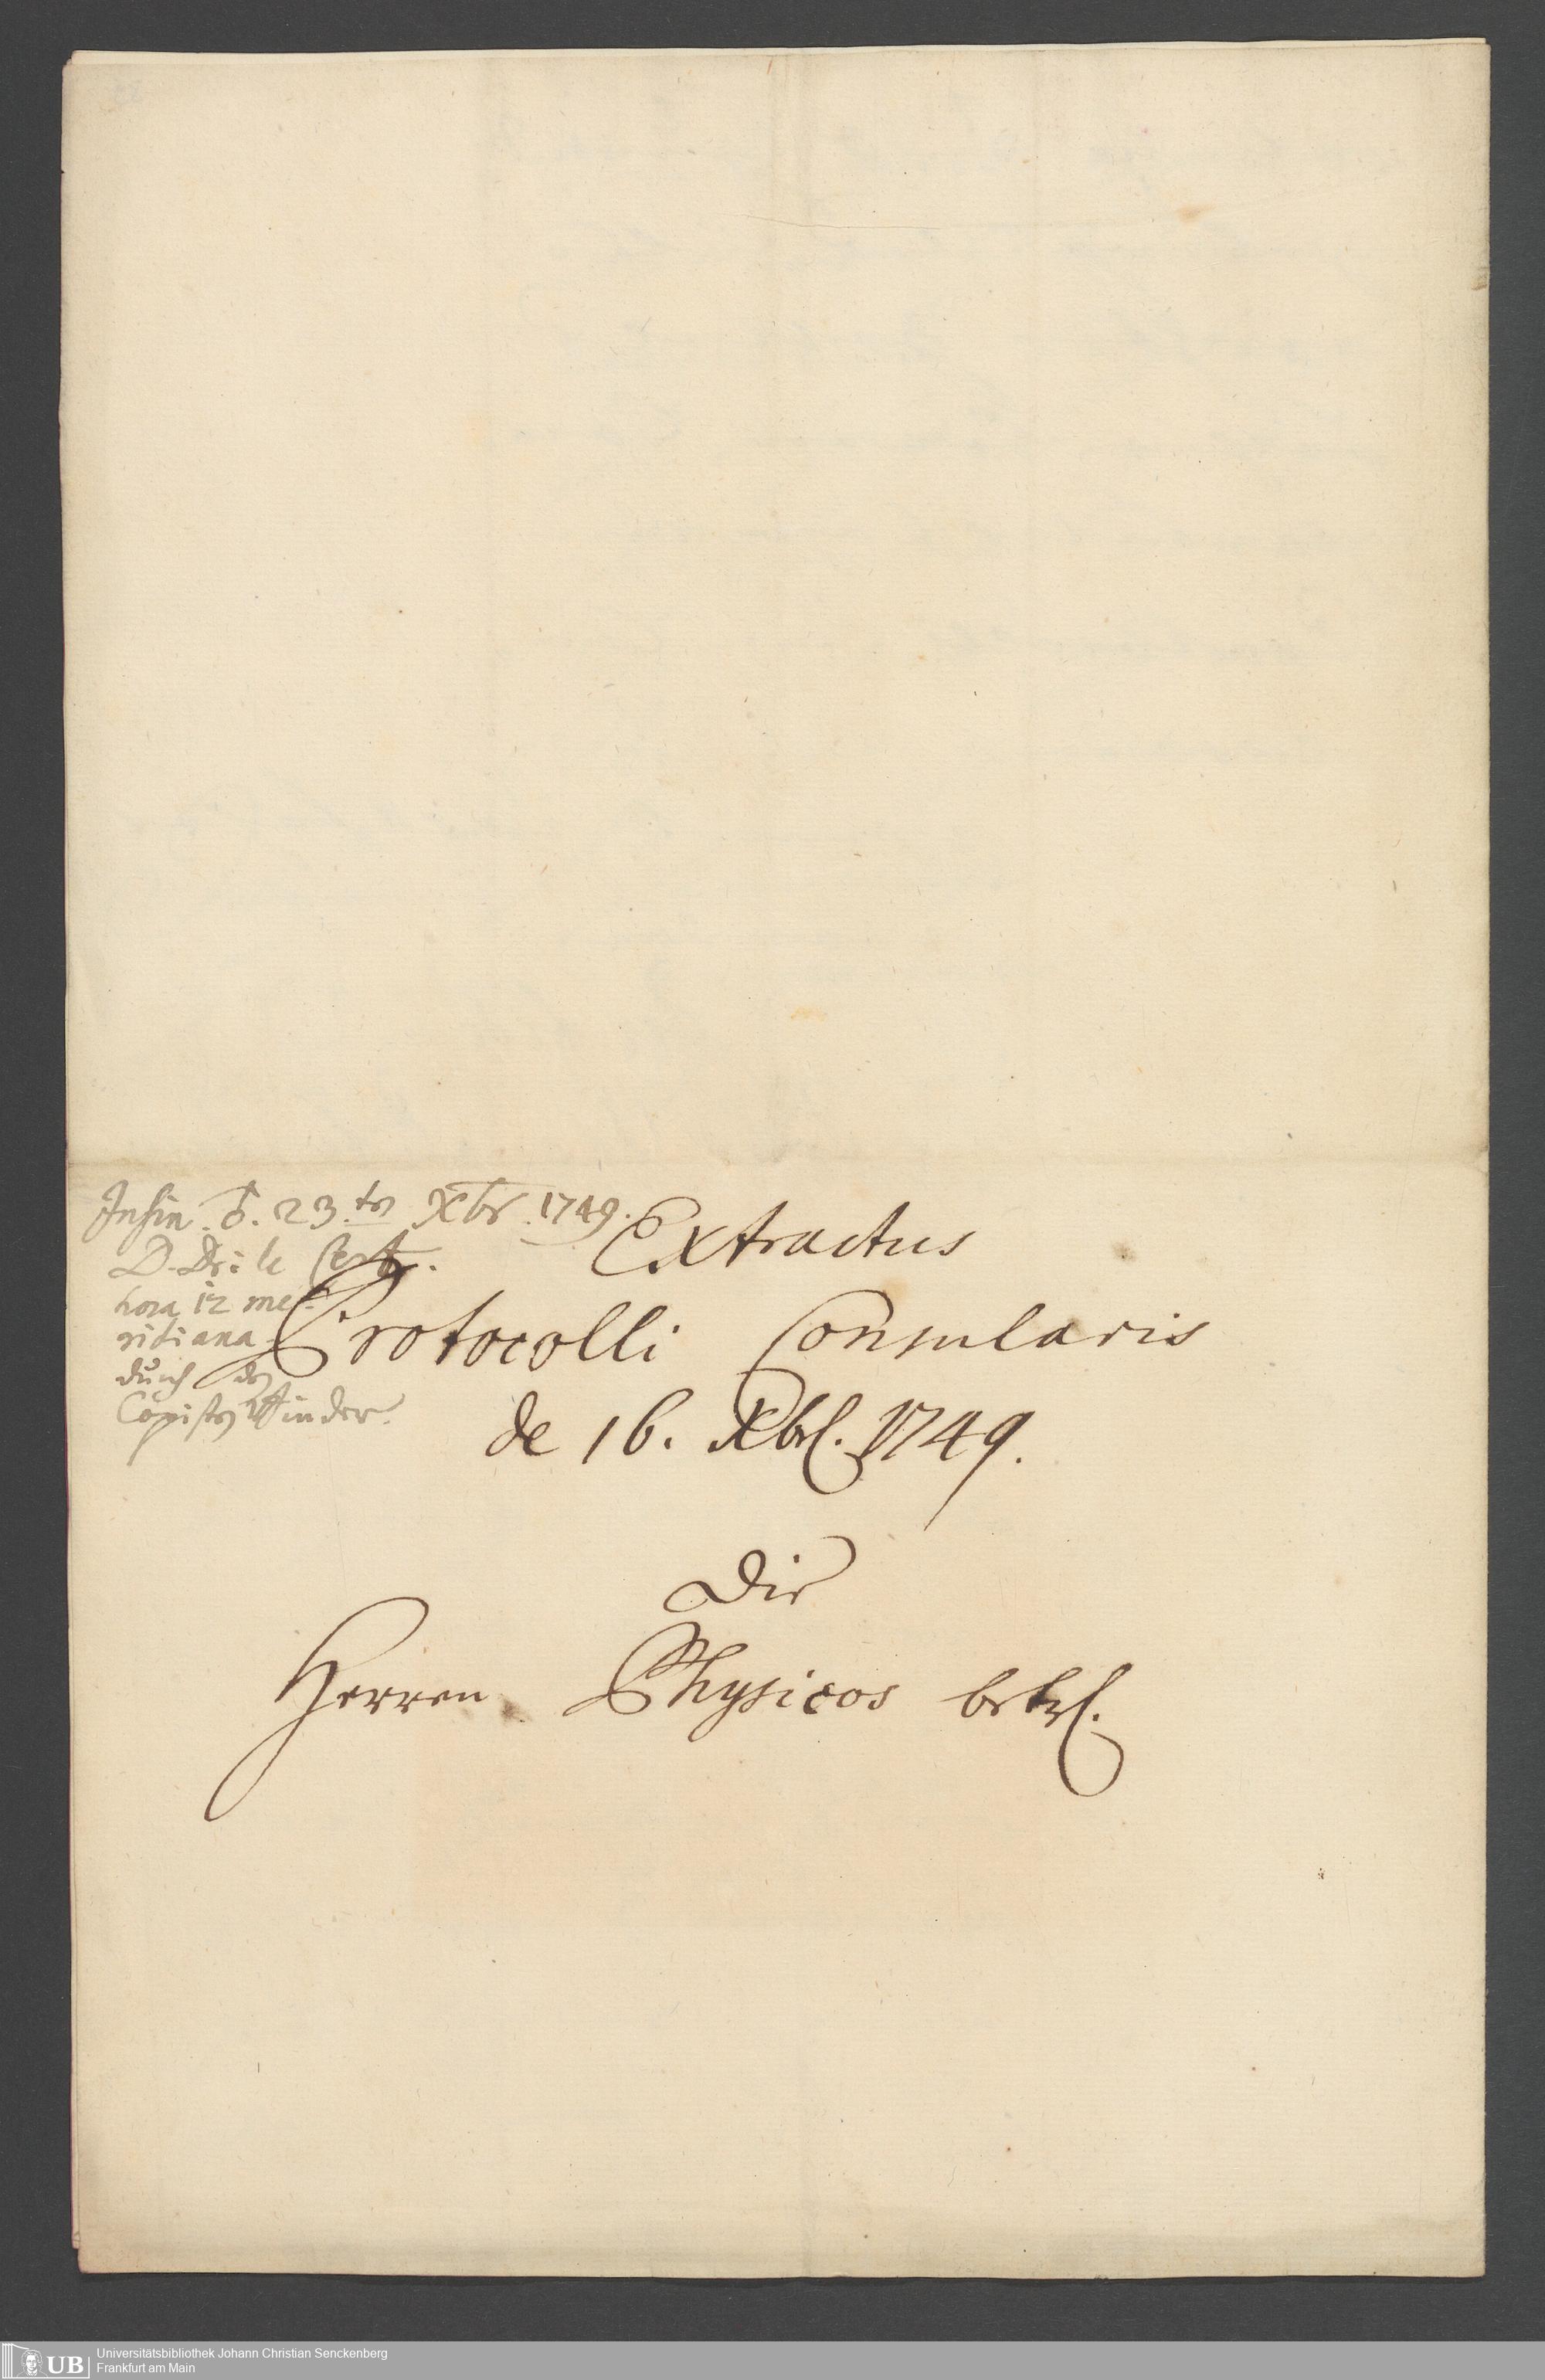 Insin. d. 23.ten Xbr. 1749.
D. Dr: le Cerf.
hora 12 me-
ridiana
durch den
Copisten Winder.
Extractus
Protocolli Consularis
de 16. Xbr. 1749.
Die
Herren Physicos betr.
UB Universitätsbibliothek Johann Christian Senckenberg
Frankfurt am Main